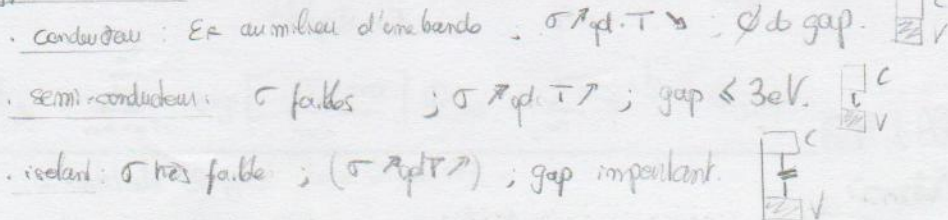 . conducteur : EF au milieu d'une bande ; σ ↗ qd. T ↘ ; ∅ de gap. C V
. semi-conducteur : σ faibles ; σ ↗ qd. T ↗ ; gap ⩽ 3eV. C V
. isolant : σ très faible ; (σ ↗ qd T ↗) ; gap important. C V